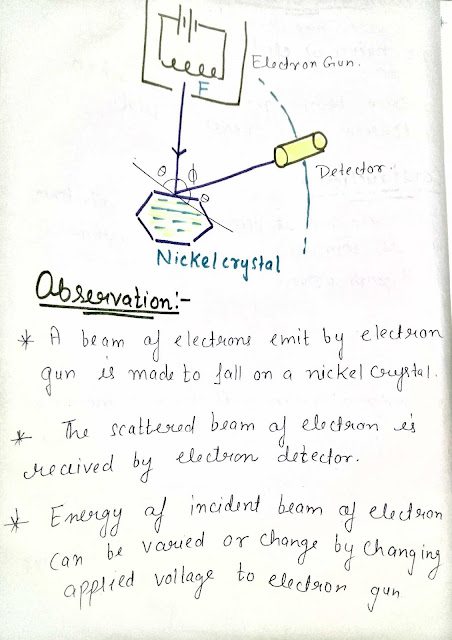 Electron Gun.
F
Detector.
θ ϕ
θ
Nickel crystal
Observation:-
* A beam of electrons emit by electron
gun is made to fall on a nickel crystal.
* The scattered beam of electron is
received by electron detector.
* Energy of incident beam of electron
can be varied or change by changing
applied voltage to electron gun